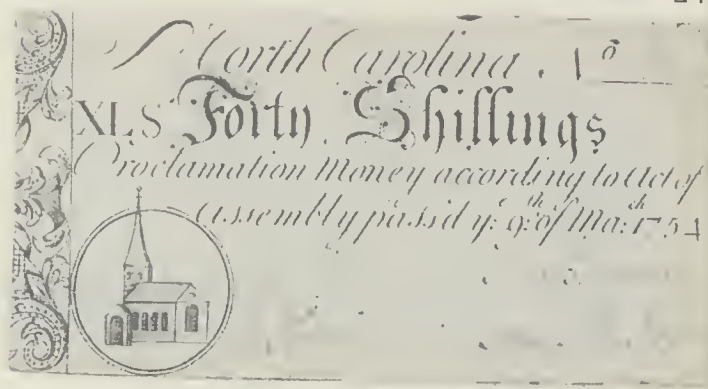 North Carolina. No
XLS. Forty Shillings
Proclamation Money according to Act of
Assembly pass'd ye: 9th: of Mach: 1754